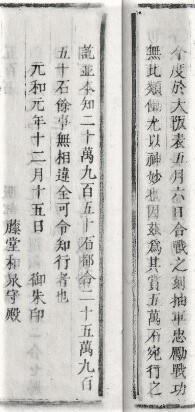 今度於大坂表五月六日合戰之刻抽軍忠勵戰功
無比類働尤以神妙也因玆爲其賞五萬石宛行之
訖並本知二十萬九百五十石都合二十五萬九百
五十石餘事無相違全可令知行者也
元和元年十二月十五日　御朱印
藤堂和泉守殿